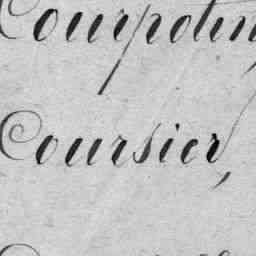 Courpotin,
Coursier,